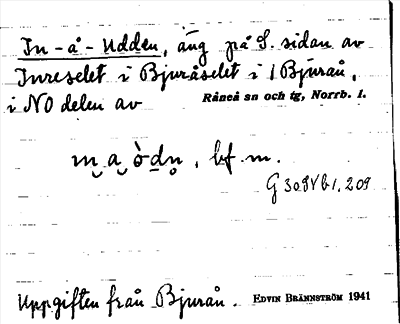 In-å-Udden, äng på S. sidan av
Inreselet i Bjuråselet i / Bjurån,
i NO delen av Råneå sn och tg, Norrb. l.
bf m.
G 309 V b 1, 209
Uppgiften från Bjurån. EDVIN BRÄNNSTRÖM 1941